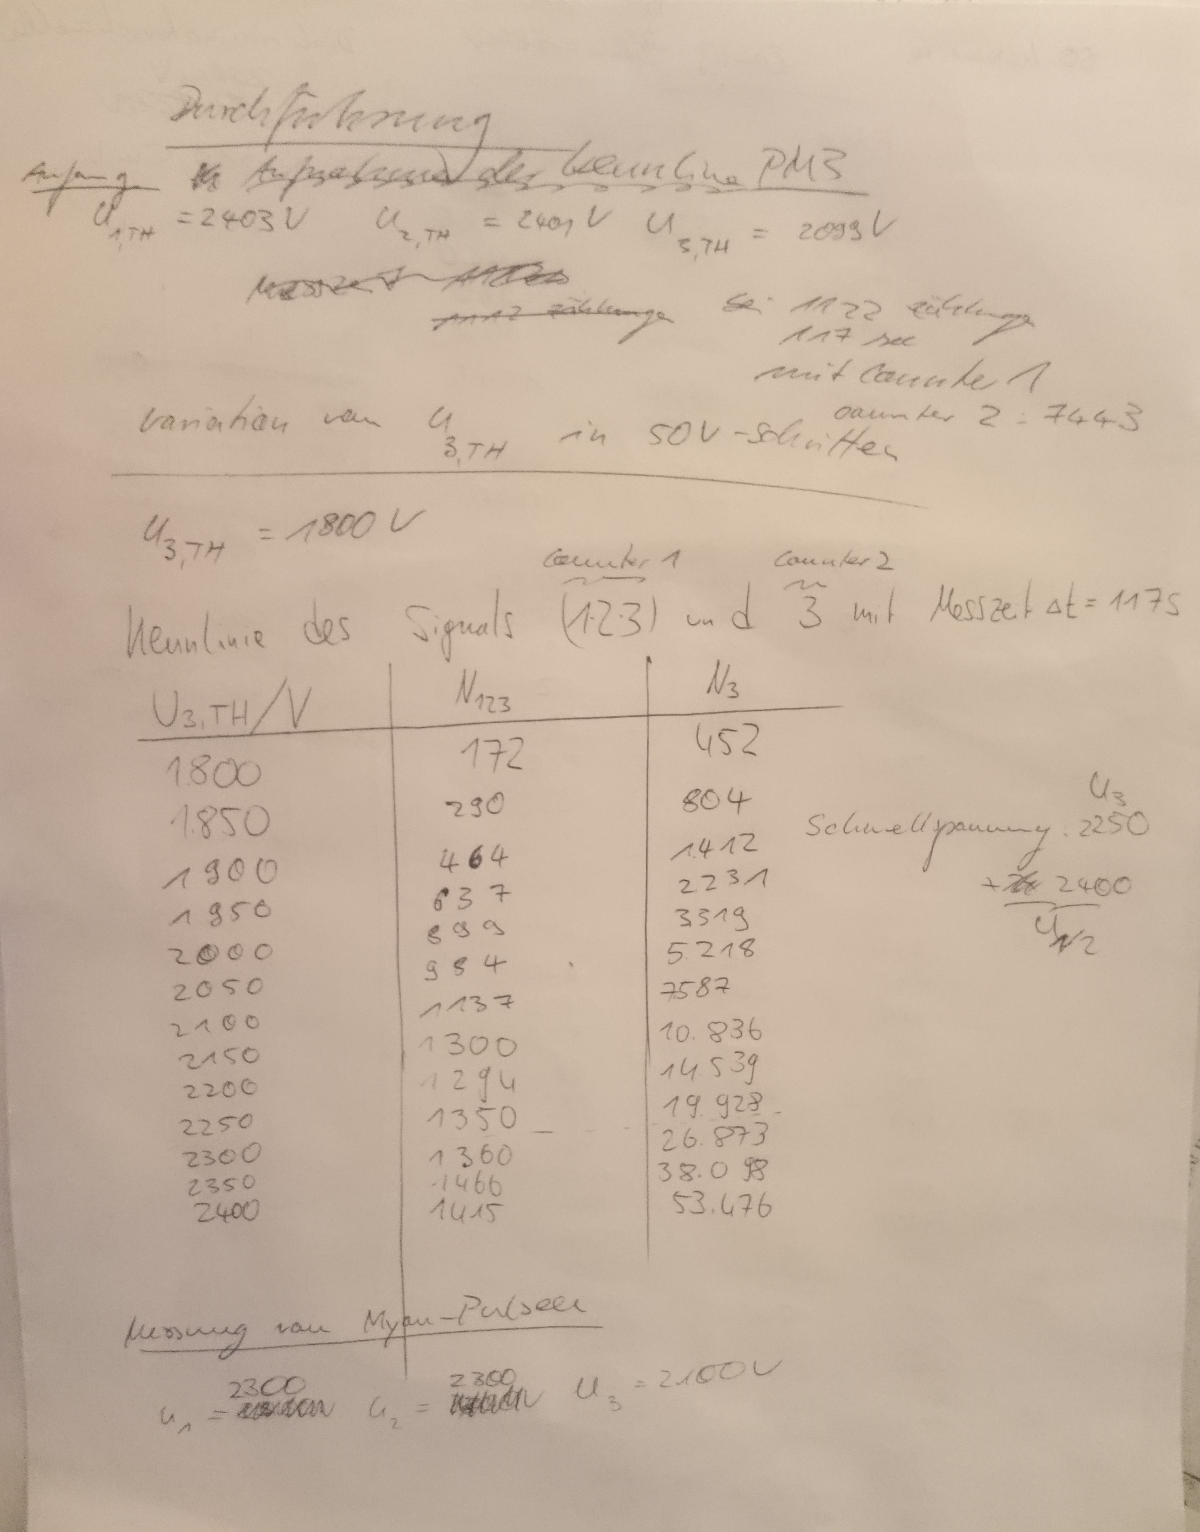 Durchführung
Anfang Aufnahme der Kennlinie PM3
U1,TH = 2403 V U2,TH = 2401 V U3,TH = 2099 V
Messzeit
1112 zählungen bei 1122 zählungen
117 sec
mit Counter 1
counter 2: 7443
variation von U3,TH in 50V-Schritten
U3,TH = 1800 V
Counter 1 Counter 2
Kennlinie des Signals (1·2·3) und 3 mit Messzeit Δt = 117s
U3,TH/V N123 N3
1.800 172 452
1.850 290 804
1900 464 1.412
1950 637 2231
2000 899 3319
2050 984 5.218
2100 1137 7587
2150 1300 10.836
2200 1294 14.539
2250 1350 19.928
2300 1360 26.873
2350 1466 38.098
2400 1415 53.476
U3
Schwellspannung: 2250
+ 2400
Messung von Myon-Pulsen
U1 = 2300 U2 = 2300 U3 = 2100V